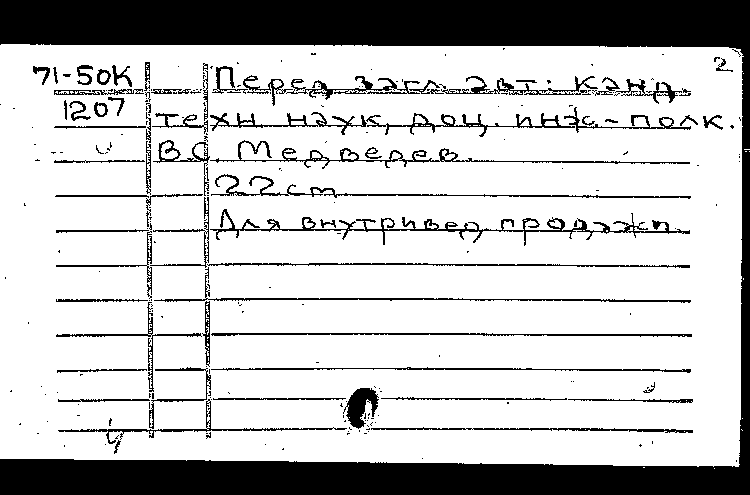 2
71-50К Перед загл. авт: канд.
1207 техн. наук, доц. инж.-полк.
В.С. Медведев.
22 см
Для внутривед. продажи.